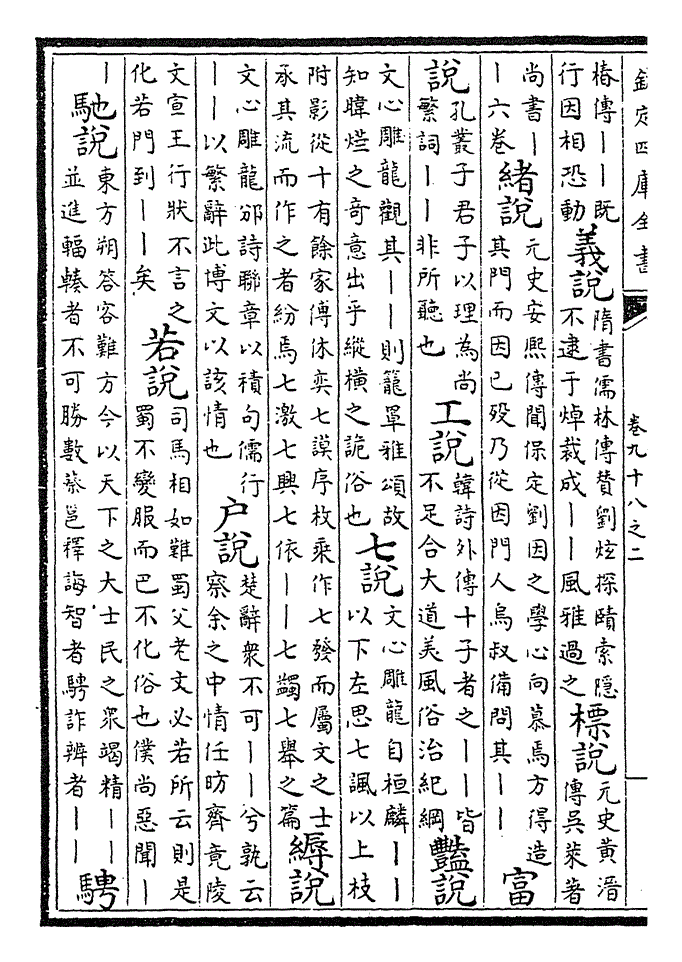 欽定四庫全書 卷九十八之二
椿傳丨丨既行因相恐動 義說 隋書儒林傳贊劉炫探賾索隱不逮于焯裁成丨丨風雅過之 標說 元史黃溍傳吳萊著
尚書丨丨六卷 緒說 元史安熙傳聞保定劉因之學心向慕焉方得造其門而因已歿乃從因門人烏叔備問其丨丨 富
說 孔叢子君子以理為尚繁詞丨丨非所聽也 工說 韓詩外傳十子者之丨丨皆不足合大道美風俗治紀綱 豔說
文心雕龍觀其丨丨則籠罩雅頌故知暐燁之奇意出乎縱橫之詭俗也 七說 文心雕龍自桓麟丨丨以下左思七諷以上枝
附影從十有餘家傅休奕七謨序枚乘作七發而屬文之士承其流而作之者紛焉七激七興七依丨丨七蠲七舉之篇 縟說
文心雕龍邠詩聯章以積句儒行丨丨以繁辭此博文以該情也 户說 楚辭衆不可丨丨兮孰云察余之中情任昉齊竟陵
文宣王行狀不言之化若門到丨丨矣 若說 司馬相如難蜀父老文必若所云則是蜀不變服而巴不化俗也僕尚惡聞丨
丨 馳說 東方朔答客難方今以天下之大士民之衆竭精丨丨並進輻輳者不可勝數蔡邕釋誨智者騁詐辨者丨丨 騁